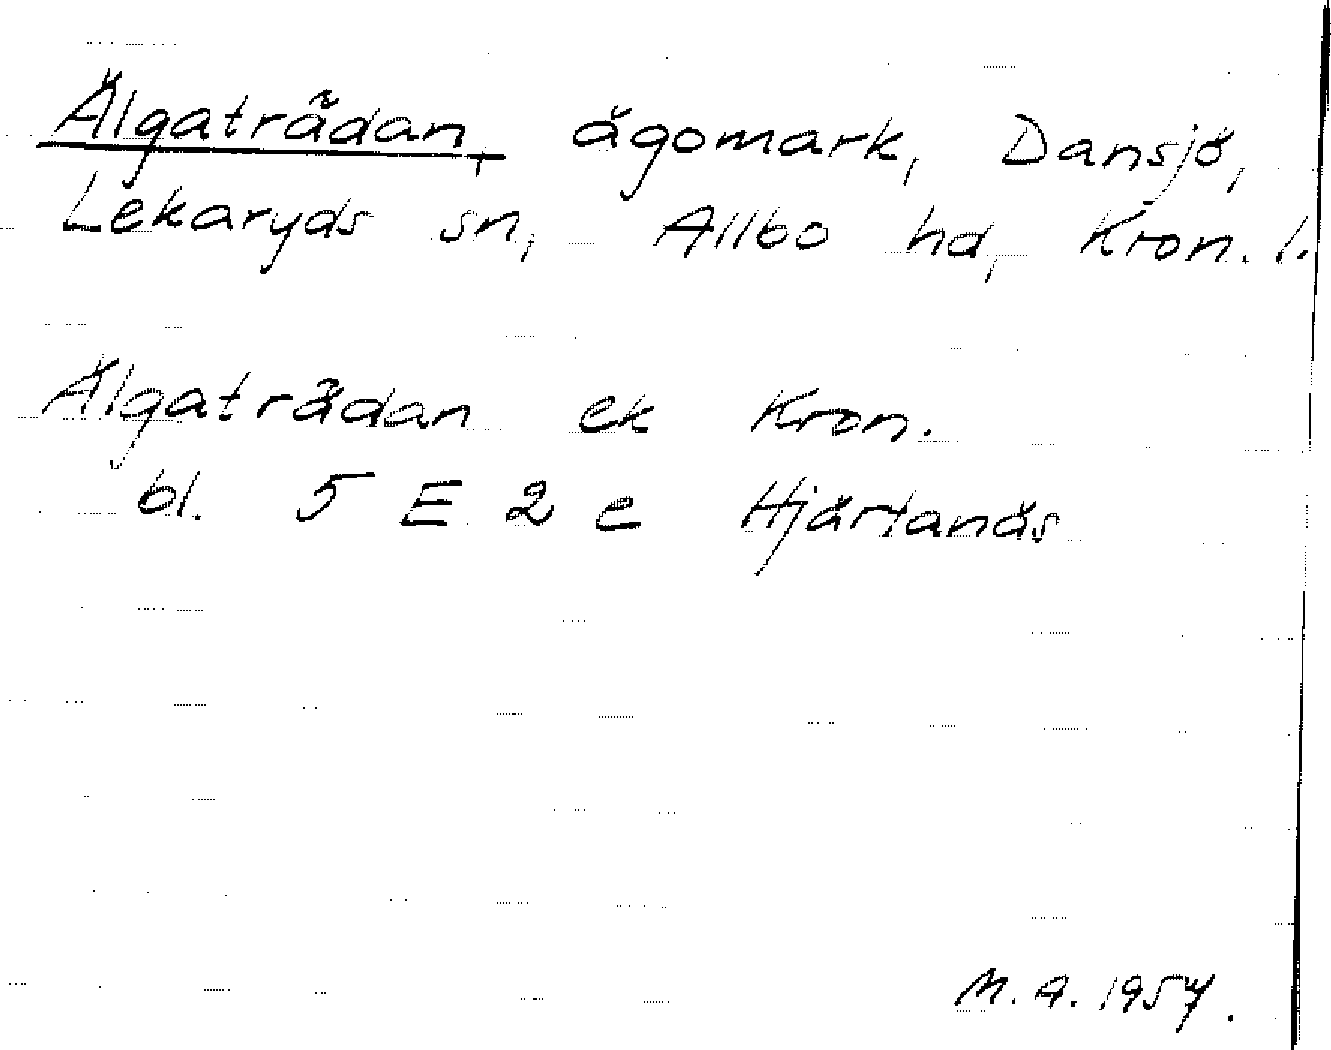 Älgaträdan, ägomark, Dansjö,
Lekaryds sn, Allbo hd, Kron. l.
Älgaträdan ek Kron.
bl. 5 E 2 e Hjärtanäs
M. A. 1954.